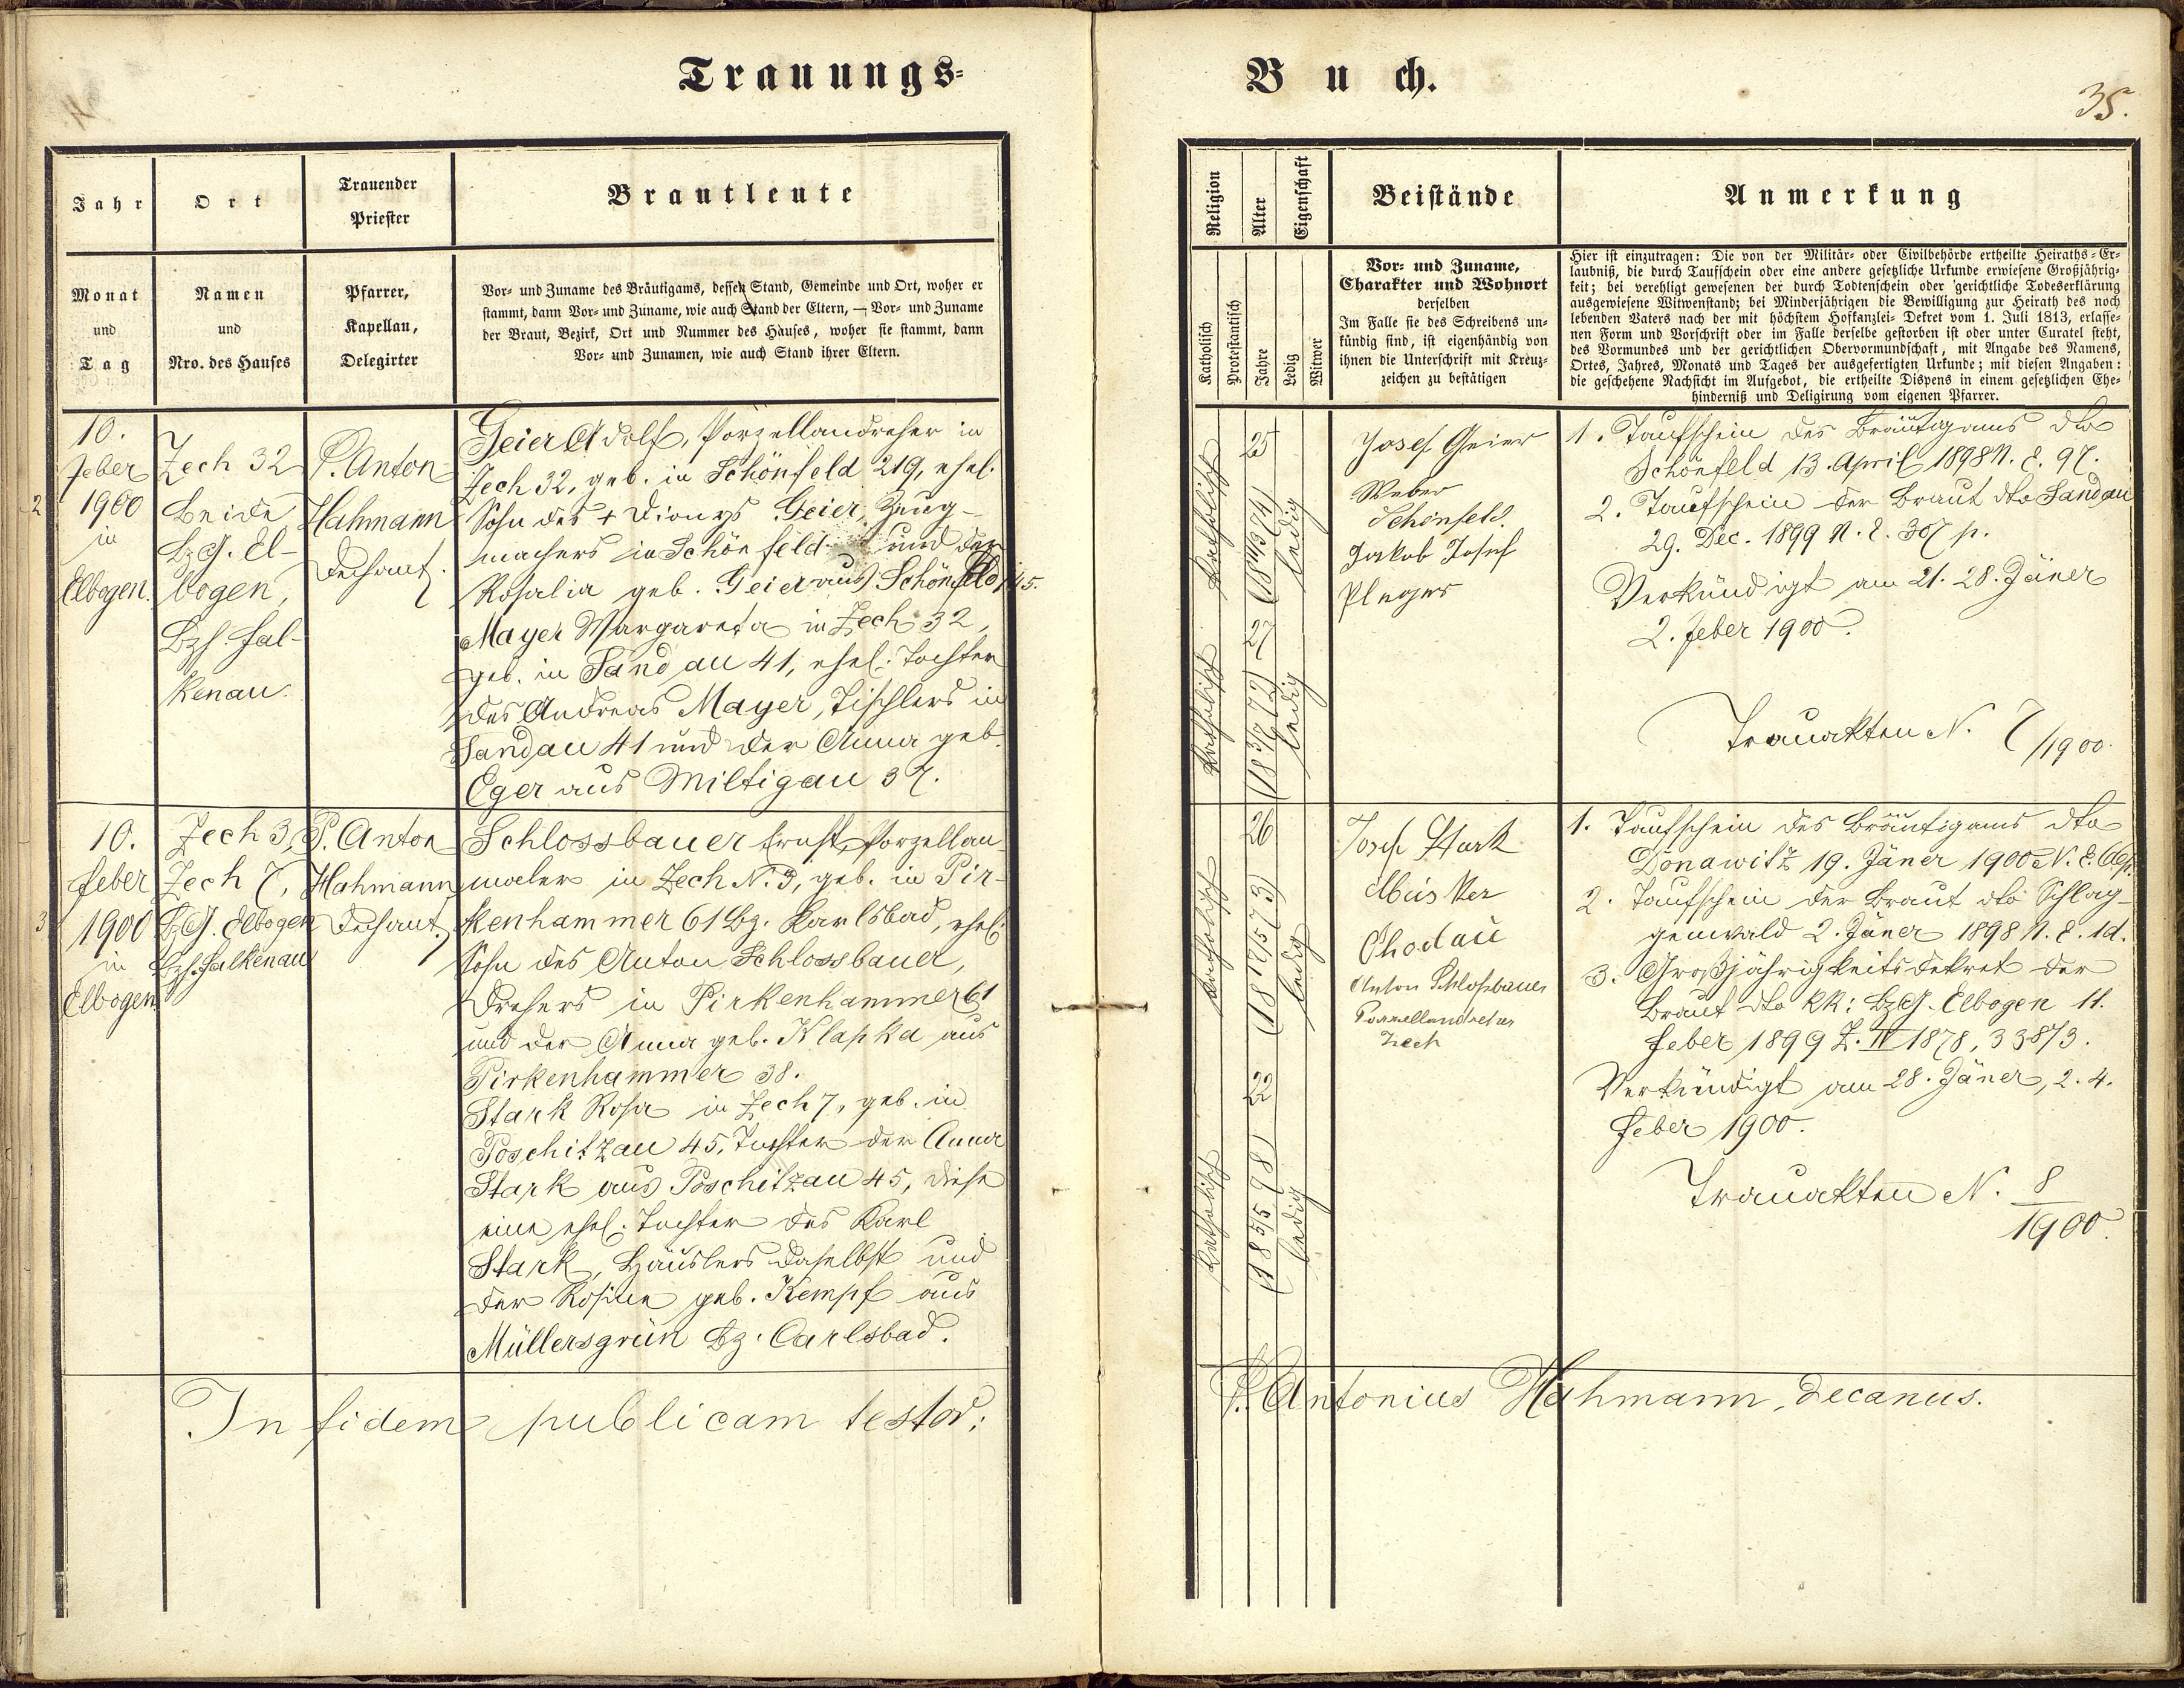 Trauungs-
Jahr
Ort
Trauender
Priester
Brautleute
Monat
und
Tag
Namen
und
Nro. des Hauses
Pfarrer,
Kapellan,
Delegirter
Vor- und Zuname des Bräutigams, dessen Stand, Gemeinde und Ort, woher er
stammt, dann Vor- und Zuname, wie auch Stand der Eltern, — Vor- und Zuname
der Braut, Bezirk, Ort und Nummer des Hauses, woher sie stammt, dann
Vor- und Zunamen, wie auch Stand ihrer Eltern.
2
10.
Feber
1900
in
Elbogen.
Zech 32
Beide
BzG. El-
bogen,
Bzh. Fal-
kenau.
P. Anton
Hahmann
Dechant.
Geier Adolf, Porzellandreher in
Zech 32, geb. in Schönfeld 219, ehel.
Sohn des + Dionys Geier, Zeug-
machers in Schönfeld und der
Rosalia geb. Geier aus Schönfeld 145.
Mayer Margareta in Zech 32,
geb. in Sandau 41, ehel. Tochter
des Andreas Mayer, Tischlers in
Sandau 41 und der Anna geb.
Eger aus Miltigau 37.
3
10.
Feber
1900
in
Elbogen
Zech 3,
Zech 7,
BzG. Elbogen
Bzh. Falkenau
P. Anton
Hahmann
Dechant.
Schlossbauer Ernst, Porzellan-
maler in Zech N. 3, geb. in Pir-
kenhammer 61 Bz. Karlsbad, ehel.
Sohn des Anton Schlossbauer,
Drehers in Pirkenhammer 61
und der Anna geb. Klapka aus
Pirkenhammer 38.
Stark Rosa in Zech 7, geb. in
Poschitzau 45, Tochter der Anna
Stark aus Poschitzau 45, diese
eine ehel. Tochter des Karl
Stark, Häuslers daselbst und
der Rosina geb. Kempf aus
Müllersgrün Bz. Carlsbad.
In fidem publicam testor:
Buch.
35.
Religion
Alter
Eigenschaft
Beistände
Anmerkung
Katholisch
Protestantisch
Jahre
Ledig
Witwer
Vor- und Zuname,
Charakter und Wohnort
derselben
Im Falle sie des Schreibens un-
kündig sind, ist eigenhändig von
ihnen die Unterschrift mit Kreuz-
zeichen zu bestätigen
Hier ist einzutragen: Die von der Militär- oder Civilbehörde ertheilte Heiraths-Er-
laubniß, die durch Taufschein oder eine andere gesetzliche Urkunde erwiesene Großjährig-
keit; bei verehligt gewesenen der durch Todtenschein oder gerichtliche Todeserklärung
ausgewiesene Witwenstand; bei Minderjährigen die Bewilligung zur Heirath des noch
lebenden Vaters nach der mit höchstem Hofkanzlei- Dekret vom 1. Juli 1813, erlasse-
nen Form und Vorschrift oder im Falle derselbe gestorben ist oder unter Curatel steht,
des Vormundes und der gerichtlichen Obervormundschaft, mit Angabe des Namens,
Ortes, Jahres, Monats und Tages der ausgefertigten Urkunde; mit diesen Angaben:
die geschehene Nachsicht im Aufgebot, die ertheilte Dispens in einem gesetzlichen Ehe-
hinderniß und Deligirung vom eigenen Pfarrer.
katholisch
25
ledig
katholisch
27
ledig
Josef Geier
Weber
Schönfeld.
Jakob Josef
1. Taufschein des Bräutigams dto
Schönfeld 13. April 1898 N. E. 97.
2. Taufschein der Braut dto Sandau
29. Dec. 1899 N. E. 307 p.
Verkündigt am 21. 28. Jäner
2. Feber 1900.
Trauakten N. 7/1900.
katholisch
26
ledig
katholisch
22
ledig
Josef Stark
Chodau
Anton Schloßbauer
Porzellandreher
Zech
1. Taufschein des Bräutigams dto
Donawitz 19. Jäner 1900 N. E.
2. Taufschein der Braut dto Schlag-
genwald 2. Jäner 1898 N. E. 1d.
3. Großjährigkeitsdekret der
Braut dto kk: BzG. Elbogen 11.
Feber 1899 Z. IV 1878, 338/3.
Verkündigt am 28. Jäner, 2. 4.
Feber 1900.
Trauakten N. 8
1900.
P. Antonius Hahmann, Decanus.